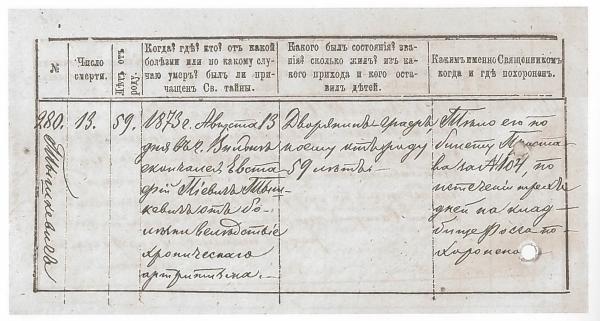 №
Число смерти.
Лѣтъ отъ роду.
Когда? гдѣ? кто? отъ какой
болѣзни или по какому слу-
чаю умеръ? былъ ли при-
чащенъ Св. тайны.
Какого былъ состоянія? зва-
нія? сколько жилъ? изъ ка-
кого прихода и кого оста-
вилъ дѣтей.
Какимъ именно Священникомъ
когда и гдѣ похороненъ.
280.
Тышкевичъ
13.
59.
1873 г. Августа 13
дня въ г. Вильнѣ
скончался Евста-
фій Піевичъ Тыш-
кевичъ отъ бо-
лѣзни вслѣдствіе
хроническаго
артритизма.
Дворянинъ графъ,
отъ роду
59 лѣтъ
Тѣло его по
билету Приста-
ва за № 107, по
истеченіи трехъ
дней на клад-
бищѣ Росса по-
хоронено